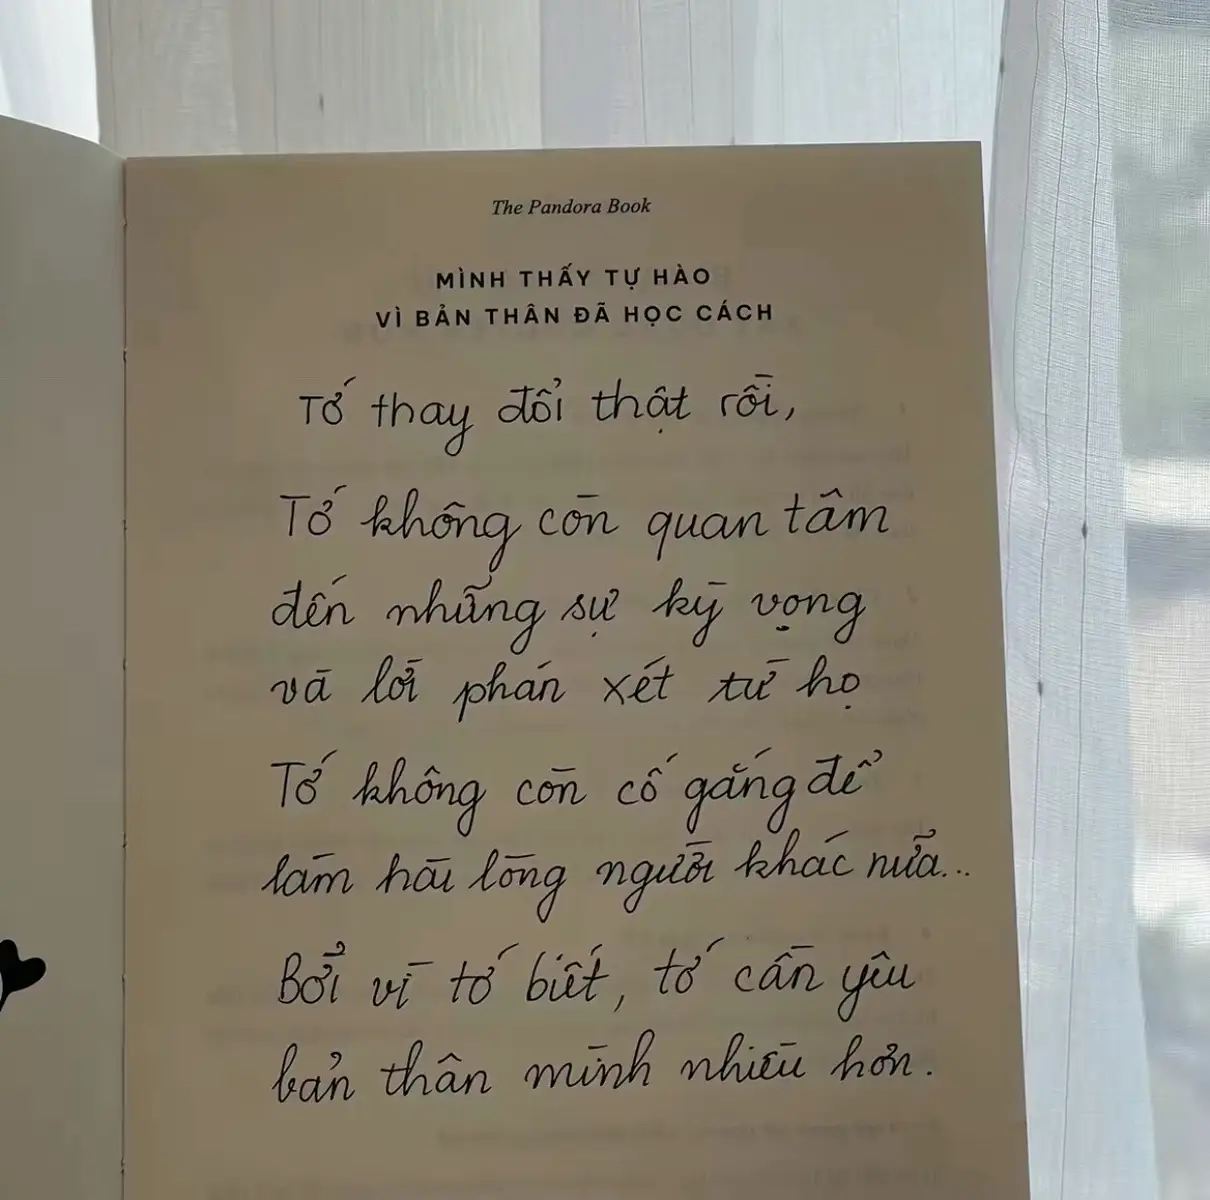 The Pandora Book
MÌNH THẤY TỰ HÀO
VÌ BẢN THÂN ĐÃ HỌC CÁCH
Tớ thay đổi thật rồi,
Tớ không còn quan tâm
đến những sự kỳ vọng
và lời phán xét từ họ
Tớ không còn cố gắng để
làm hài lòng người khác nữa...
Bởi vì tớ biết, tớ cần yêu
bản thân mình nhiều hơn.